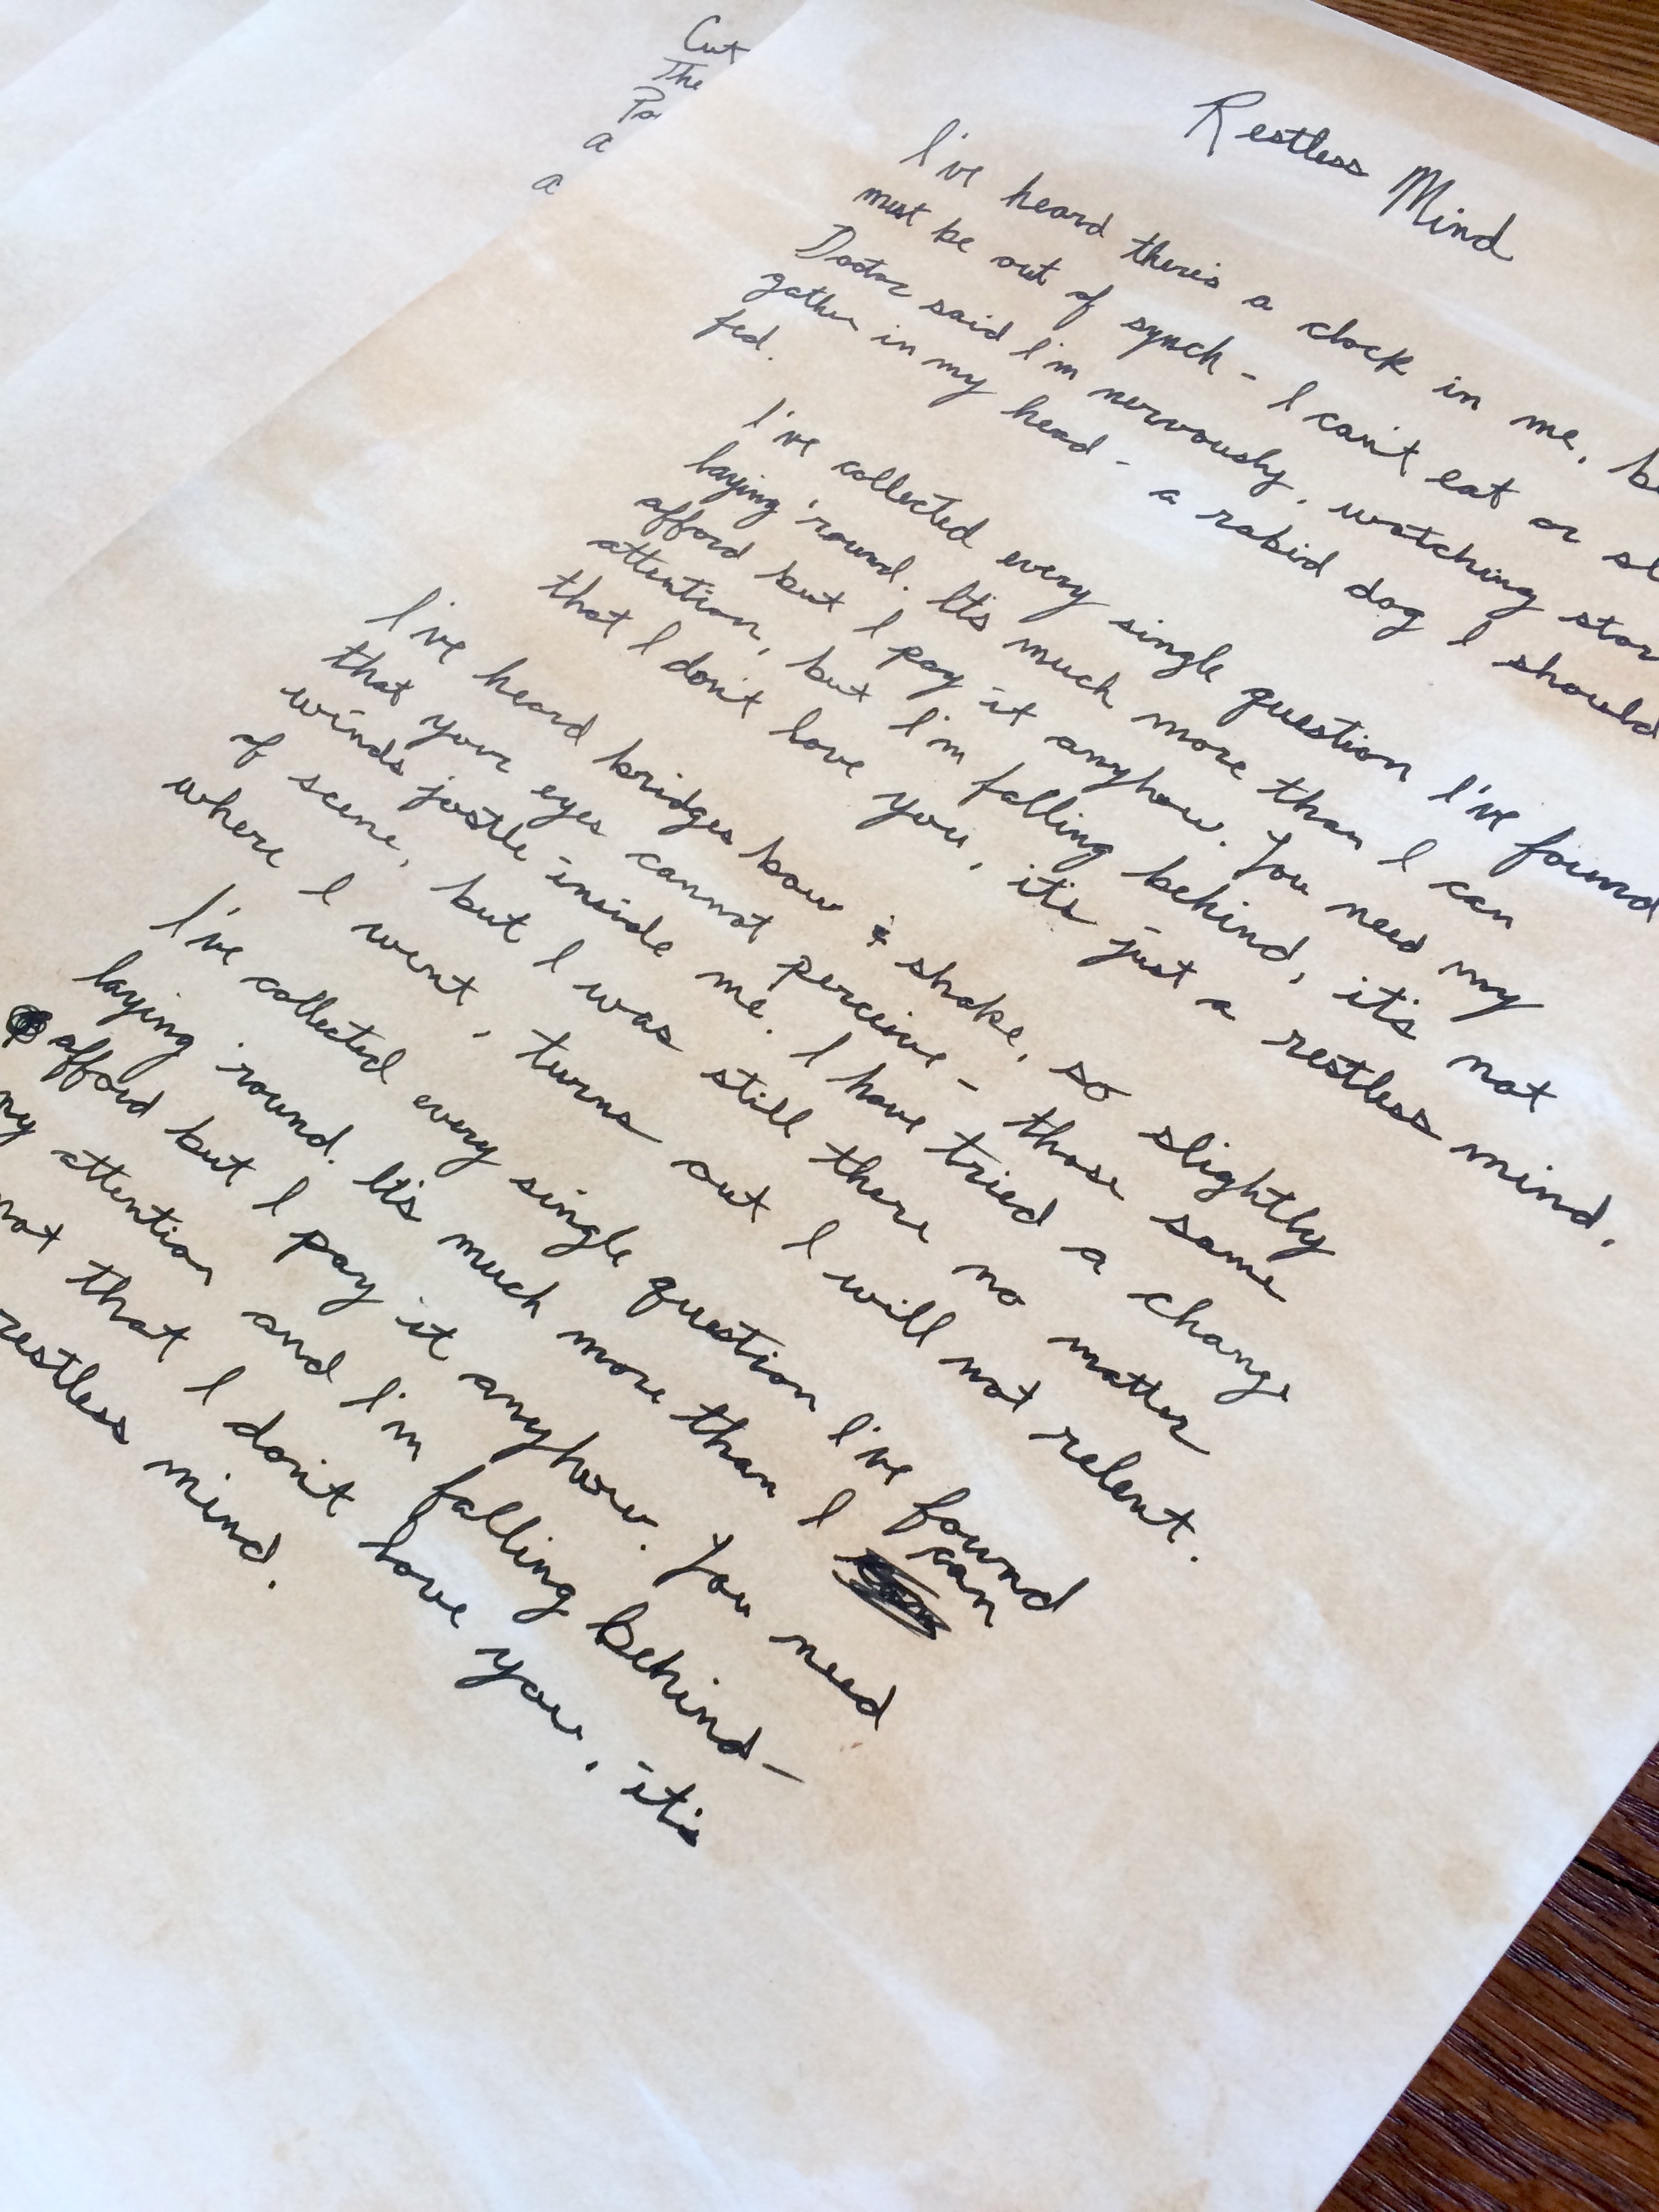 Cut
The
Pa
a
a
Restless Mind
I've heard there's a clock in me, b
must be out of synch - I can't eat or sl
Doctor said I'm nervously, watching stor
gather in my head - a rabid dog I should
fed.
I've collected every single question I've found
laying 'round. It's much more than I can
afford but I pay it anyhow. You need my
attention, but I'm falling behind, it's not
that I don't love you, it's just a restless mind.
I've heard bridges bow & shake, so slightly
that your eyes cannot perceive - those same
winds jostle inside me. I have tried a change
of scene, but I was still there no matter
where I went, turns out I will not relent.
I've collected every single question I've found
laying 'round. It's much more than I can
afford but I pay it anyhow. You need
my attention and I'm falling behind-
not that I don't love you, it's
restless mind.